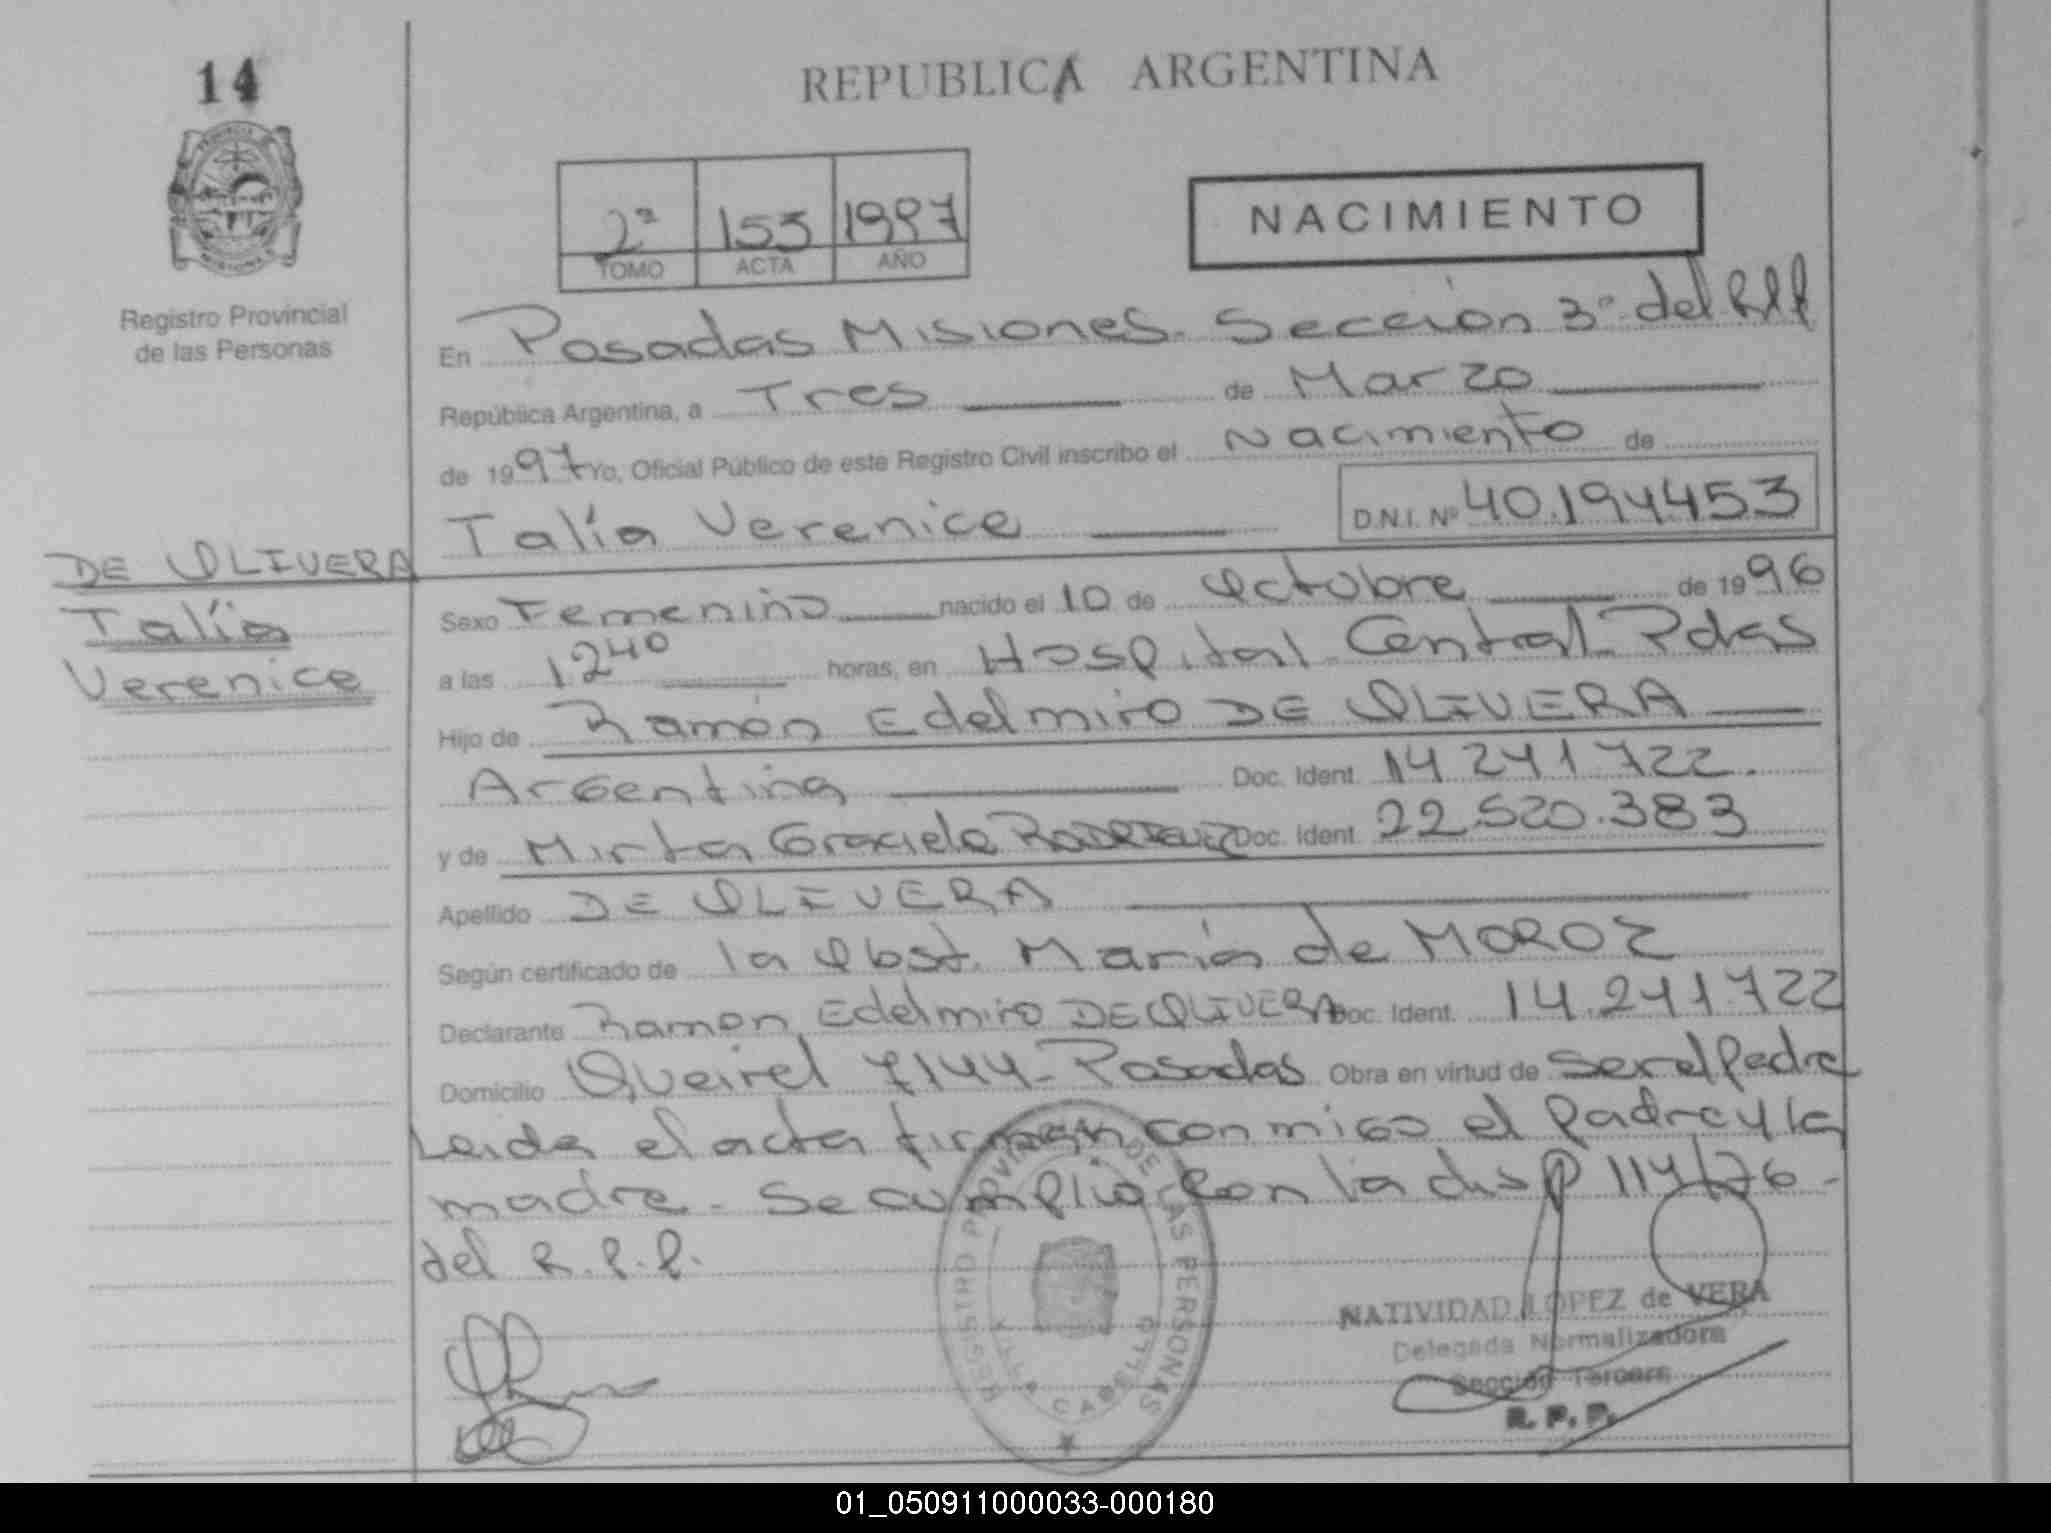 14
REPUBLICA ARGENTINA
2ª 153 1997
TOMO ACTA AÑO
NACIMIENTO
Registro Provincial
de las Personas
En Posadas Misiones. Sección 3º del RPP
República Argentina, a Tres de Marzo
de 1997 Yo, Oficial Público de este Registro Civil inscribo el Nacimiento de
Talía Verenice D.N.I. Nº 40.194453
DE OLIVERA
Talía
Verenice
Sexo Femenino nacido el 10 de Octubre de 1996
a las 12 40 horas, en Hospital Central Pdas
Hijo de Ramón Edelmiro DE OLIVERA
Argentina Doc. Ident. 14 241 722.
y de Mirta Graciela Doc. Ident. 22.520.383
Apellido DE OLIVERA
Según certificado de la Obst. María de MOROZ
Declarante Ramon Edelmiro DE OLIVERA Doc. Ident. 14.241.722
Domicilio Queirel 7144- Posadas Obra en virtud de ser el Padre
Leida el acta firman conmigo el padre y la
madre - Se cumplio con la disp 114/76 -
del R.P.P.
REGISTRO PROVINCIAL DE LAS PERSONAS
VILLA CABELLO
NATIVIDAD LOPEZ de VERA
Delegada Normalizadora
Sección Tercera
R. P. P.
01_050911000033-000180